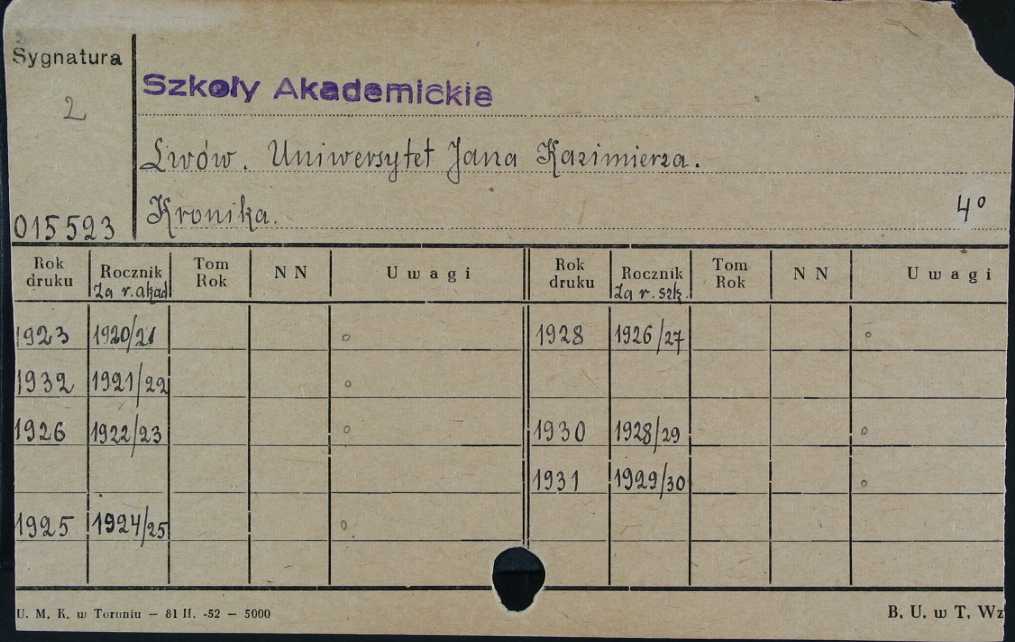 Sygnatura
Szkoły Akademickie
2
Lwów. Uniwersytet Jana Kazimierza.
Kronika.
4°
015523
Rok druku Rocznik Tom Rok NN Uwagi Rok druku Rocznik Tom Rok NN Uwagi
Za r. akad Za r. szk.
1923 1920/21 ° 1928 1926/27 °
1932 1921/22 °
1926 1922/23 ° 1930 1928/29 °
1931 1929/30 °
1925 1924/25 °
U. M. K. w Toruniu — 81 II. -52 — 5000 B. U. w T, Wz